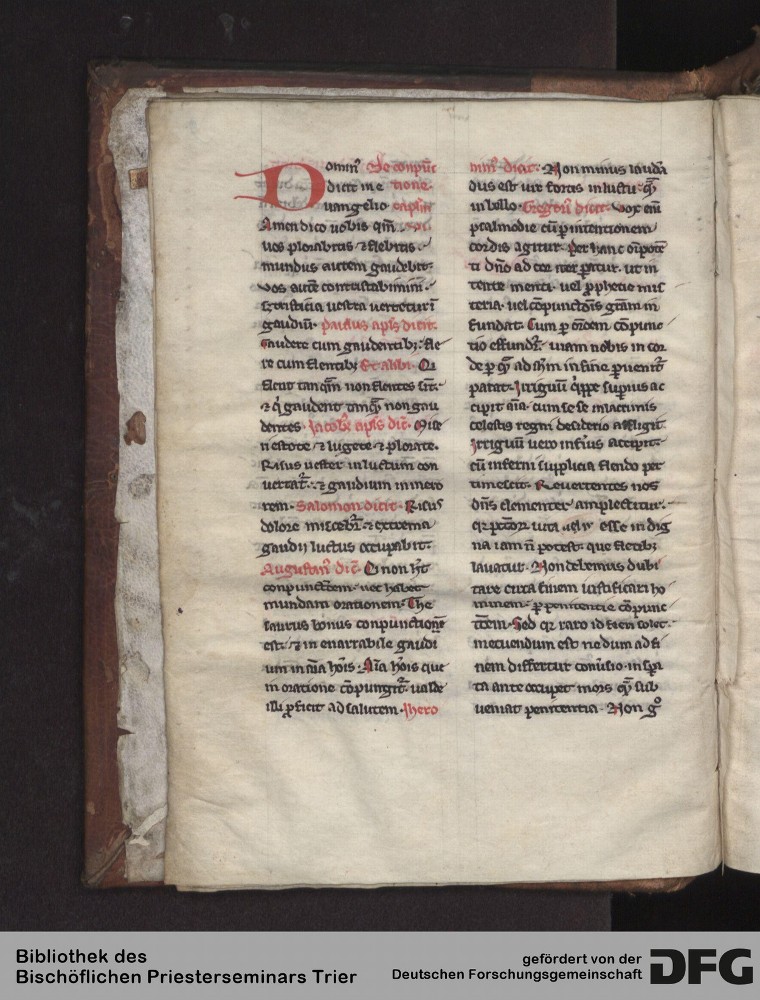 Dominꝰ De conpūc
dicit in e tione.
uangelio capł'm
Amen dico uobis qm̄
uos plorabitis ⁊ flebitis.
mundus autem gaudebit.
vos autē contristabimini.
S; tristicia uestra uertetur ī
gaudiū. paulus apł's dicit.
Gaudere cum gaudentib; fle
re cum flentib; Et alibi. Qi
flent tanq̄m non flentes sīt.
⁊ q̇ gaudent tanq̄ non gau
dentes. Jacobꝰ apł's dic̄. Mise
ri estote ⁊ lugete ⁊ plorate.
Risus uester in luctum con
uertat᷑. ⁊ gaudium in mero
rem. Salomon dicit. Risus
dolore miscebit᷑. ⁊ extrema
gaudii luctus occupabit.
Augustinꝰ dic̄. Qi non h̄t
conpunctōem. nec habet
mundam orationem. The
saurus bonus conpunctionis
est. ⁊ in enarrabile gaudi
um in aīa hoīs. Aīa hoīs que
in oratione cōpungit᷑. ualde
illi ꝓficit ad salutem. Ihero
nimꝰ dicit. Non minus laudā
dus est uir fortis in luctu. q̄
in bello. Gregoriꝰ dicit. Vox enī
psalmodie cū ꝑ intentionem
cordis agitur. ꝑer hanc om̄pot
ti dn̄o ad cor iter ꝑatur. ut in
tente menti. uel ꝓphecie mis
teria. uel cōpunctōis gr̄am in
fundat. Cum ꝑ or̄oem cōpunc
tio effundit᷑. uiam nobis in cor
de ꝑ q̄ ad ih̄m in fine ꝑuenit᷑
paratur. Irriguū q̇ppe superius ac
cipit aīa. cum se se in lacrimis
celestis regni desiderio affligit.
Irriguum uero inferius accipit.
cū inferni supplicia flendo per
timescit. Reuertentes nos
dn̄s clementer amplectitur.
qr pctōr uita esse indig
na iam n̄ potest. que fletib;
lauatur. Non debemus dubi
tare circa finem iustificari ho
minem. ꝑ penitentie cōpunc
tōem. Sed qr raro id fieri solet.
metuendum est ne dum ad fi
nem differtur conuersio. insꝑa
ta ante occupet mors q̄ sub
ueniat penitentia. Non gͦ
Bibliothek des
Bischöflichen Priesterseminars Trier
gefördert von der
Deutschen Forschungsgemeinschaft
DFG